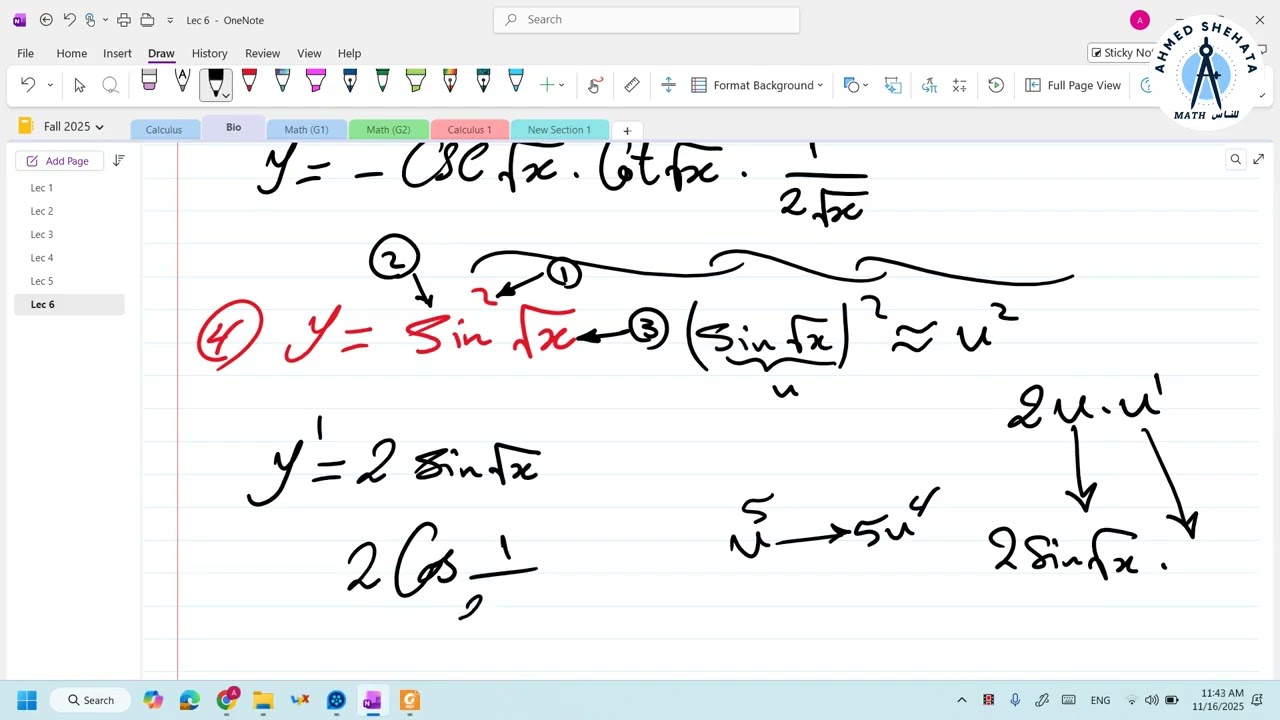 Lec 6 - OneNote
Search
A
File Home Insert Draw History Review View Help
Sticky No
AHMED SHEHATA
MATH للناس
Format Background
Full Page View
Fall 2025
Calculus Bio Math (G1) Math (G2) Calculus 1 New Section 1
Add Page
Lec 1
Lec 2
Lec 3
Lec 4
Lec 5
Lec 6
y' = - Csc √x . Cot √x . 1/(2√x)
② ①
④ y = sin² √x ③ (sin √x)² ≈ u²
u
2u . u'
y' = 2 sin √x
u⁵ → 5u⁴
2 sin √x .
2 Cos 1/2
Search
ENG
11:43 AM
11/16/2025